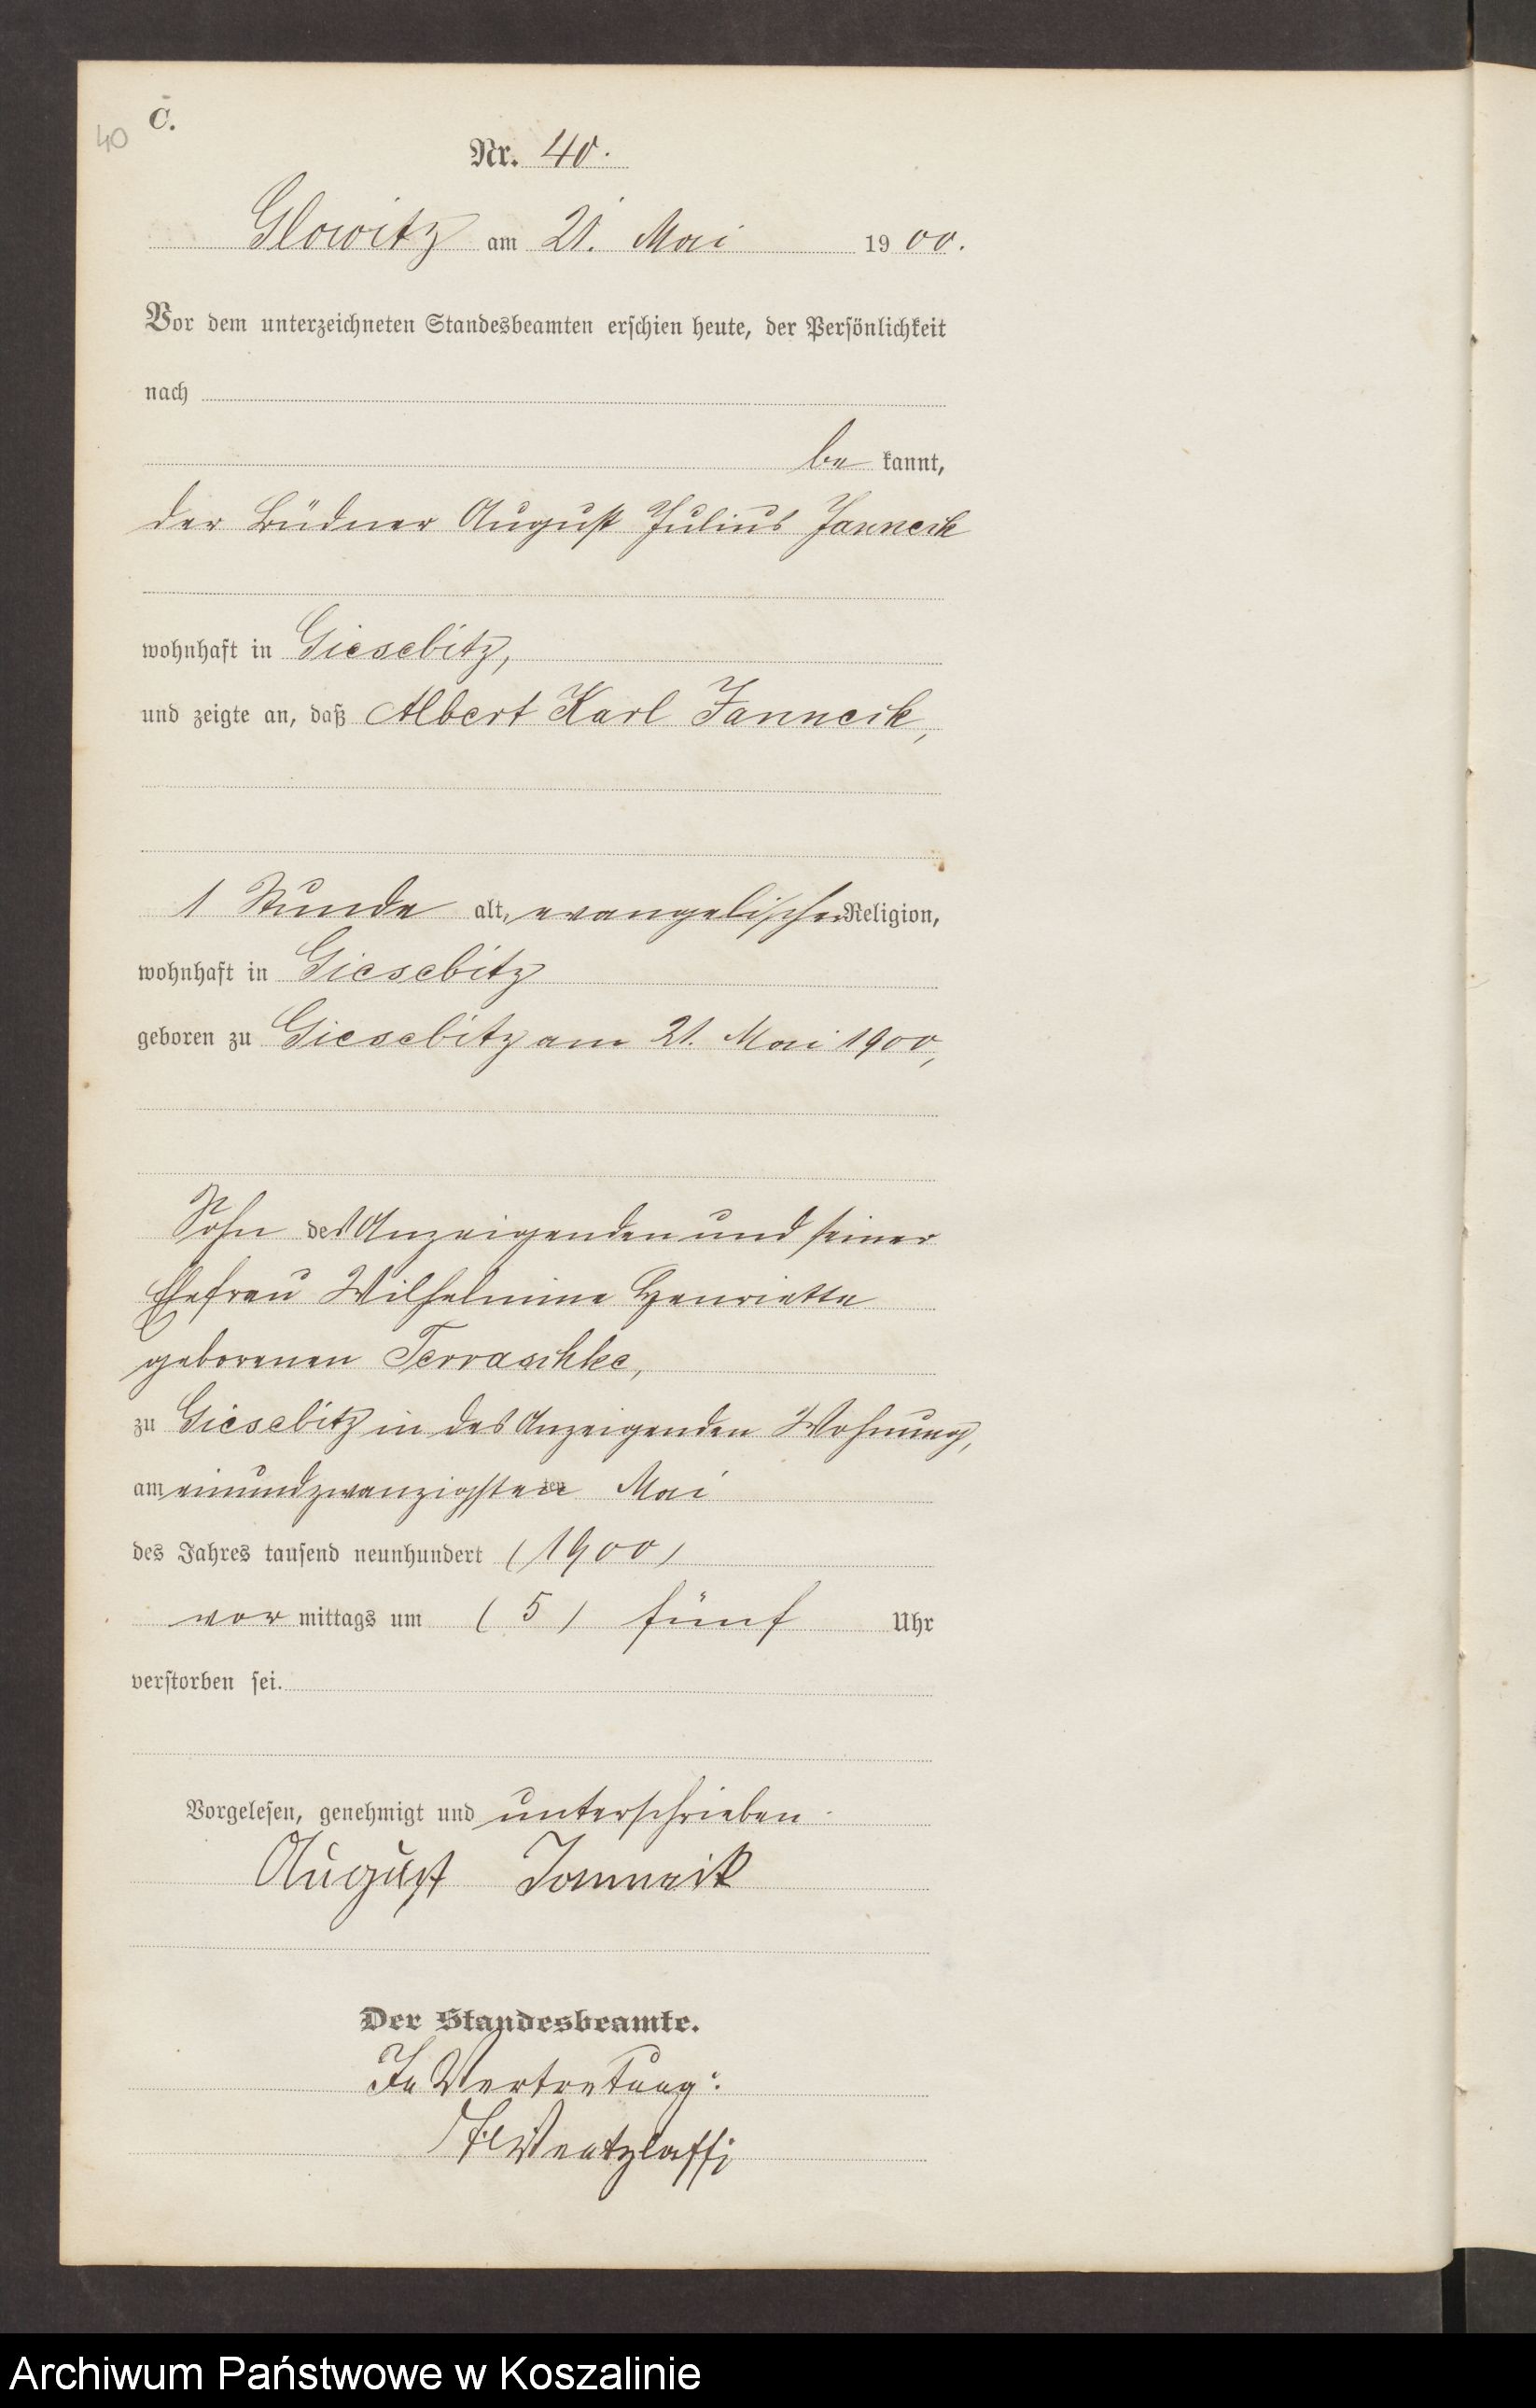 40
C.
Nr. 40.
Glowitz am 21. Mai 1900.
Vor dem unterzeichneten Standesbeamten erschien heute, der Persönlichkeit
nach
be kannt,
der Büdner August Julius Janneck
wohnhaft in Giesebitz,
und zeigte an, daß Albert Karl Janneck,
1 Stunde alt, evangelischer Religion,
wohnhaft in Giesebitz
geboren zu Giesebitz am 21. Mai 1900,
Sohn des Anzeigenden und seiner
Ehefrau Wilhelmine Henriette
geborenen Terraschke,
zu Giesebitz in des Anzeigenden Wohnung,
am einundzwanzigsten Mai
des Jahres tausend neunhundert (1900)
vor mittags um (5) fünf Uhr
verstorben sei.
Vorgelesen, genehmigt und unterschrieben.
August
Der Standesbeamte.
In Vertretung:
Archiwum Państwowe w Koszalinie